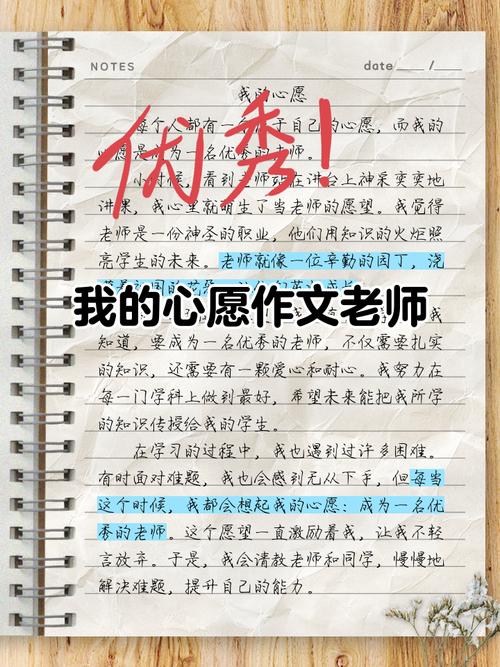 NOTES
date ___ / ___
我的心愿
优秀！
每个人都有一个属于自己的心愿，而我的
心愿是成为一名优秀的老师。
小时候，看到老师站在讲台上神采奕奕地
讲课，我心里就萌生了当老师的愿望。我觉得
老师是一份神圣的职业，他们用知识的火炬照
亮学生的未来。老师就像一位辛勤的园丁，浇
我的心愿作文老师
知道，要成为一名优秀的老师，不仅需要扎实
的知识，还需要有一颗爱心和耐心。我努力在
每一门学科上做到最好，希望未来能把我所学
的知识传授给我的学生。
在学习的过程中，我也遇到过许多困难。
有时面对难题，我也会感到无从下手，但每当
这个时候，我都会想起我的心愿：成为一名优
秀的老师。这个愿望一直激励着我，让我不轻
言放弃。于是，我会请教老师和同学，慢慢地
解决难题，提升自己的能力。